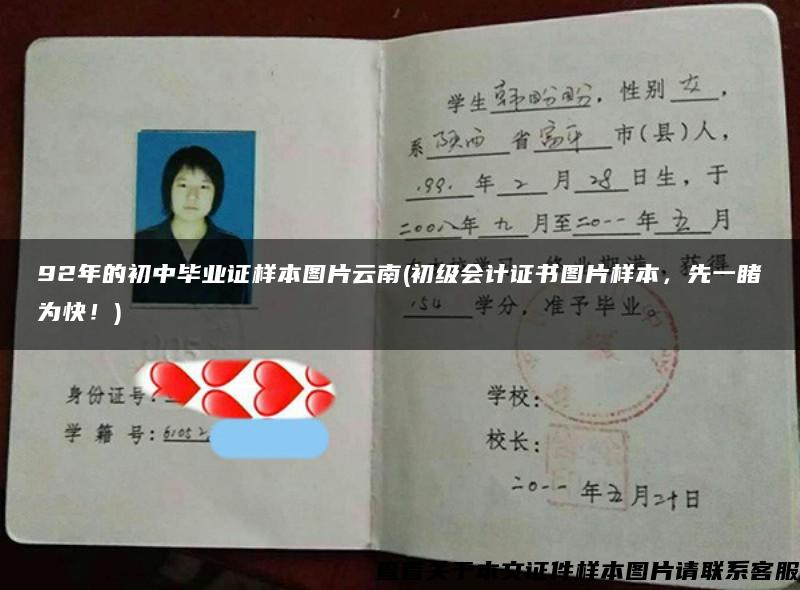 学生韩盼盼，性别女，
系陕西省富平市(县)人，
1991年2月28日生，于
二00八年九月至二0一一年五月
92年的初中毕业证样本图片云南(初级会计证书图片样本，先一睹
为快！)
获得
154学分，准予毕业。
身份证号：
学籍号：61052
学校：
校长：
二0一一年五月二十日
查看关于本文证件样本图片请联系客服